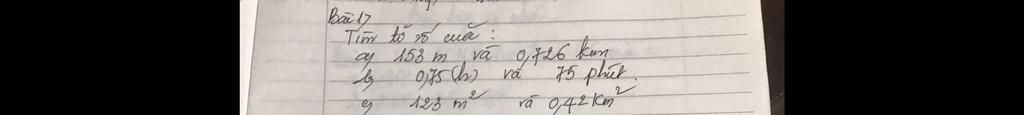 Bài 17
Tìm tỉ số của :
a) 153 m và 0,726 km
b) 0,75 (h) và 75 phút.
c) 123 m² và 0,42 Km²